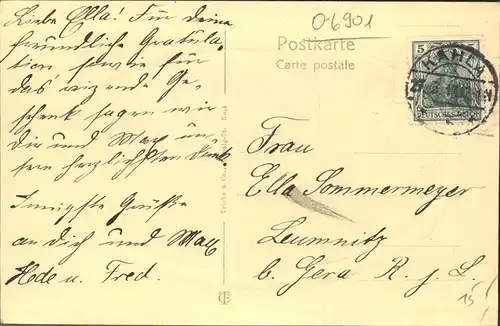 Liebe Ella! Für Deine
freundliche Gratula-
tion sowie für
das reizende Ge-
schenk sagen wir
Dir und Max un-
sern herzlichsten Dank.
Innigste Grüße
an Dich und Max
Hede u. Fred.
06901
Postkarte
Carte postale
5
KAHLA
DEUTSCHES REICH
Frau
Ella Sommermeyer
Leumnitz
b. Gera R. j. L.
15